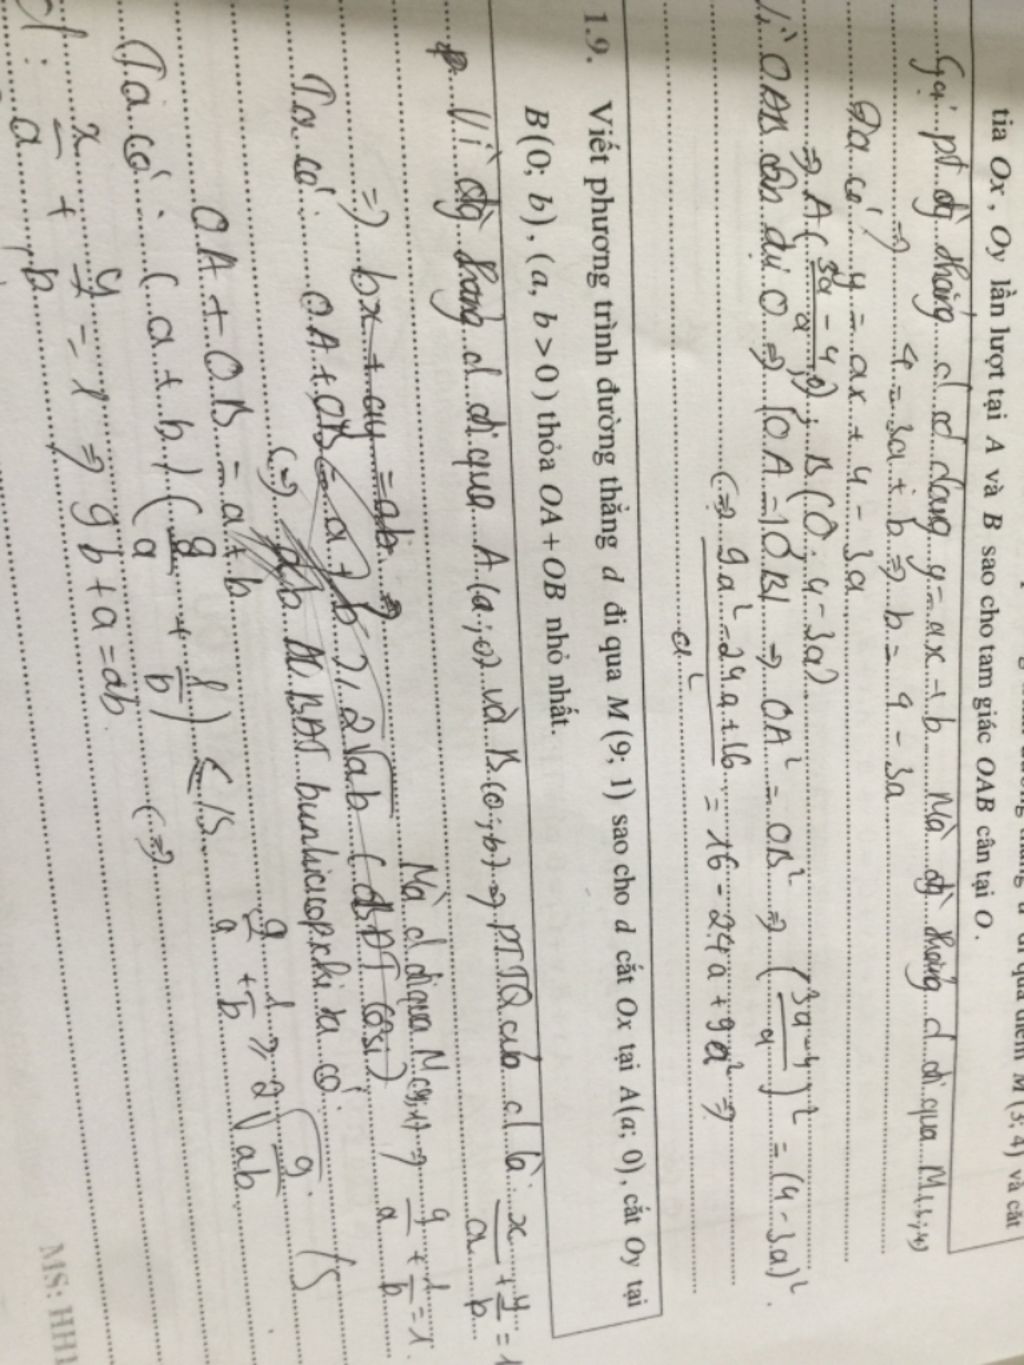 tia Ox, Oy lần lượt tại A và B sao cho tam giác OAB cân tại O.
Gọi pt đg thẳng d có dạng y = ax + b Mà đg thẳng d đi qua M(3;4)
=> 4 = 3a + b => b = 4 - 3a
Ta có: y = ax + 4 - 3a
=> A(3a-4/a; 0); B(0; 4-3a)
Vì OAB cân tại O => |OA| = |OB| => OA² = OB² => (3a-4/a)² = (4-3a)²
(=>) 9a² - 24a + 16 / a² = 16 - 24a + 9a² =>
1.9. Viết phương trình đường thẳng d đi qua M(9; 1) sao cho d cắt Ox tại A(a; 0), cắt Oy tại
B(0; b), (a, b > 0) thỏa OA + OB nhỏ nhất.
Vì đg thẳng d đi qua A(a;0) và B(0;b) => PTTQ của d là: x/a + y/b = 1
=> bx + ay = ab => Mà d đi qua M(9;1) => 9/a + 1/b = 1
Ta có: OA + OB = a + b ≥ 2√ab (BĐT Cosi)
BĐT ta có:
OA + OB = a + b 9/a + 1/b ≥ 2√9/ab
Ta có: (a + b)(9/a + 1/b) ≤
x/a + y/b = 1 => 9b + a = ab (=>)
MS: HH1